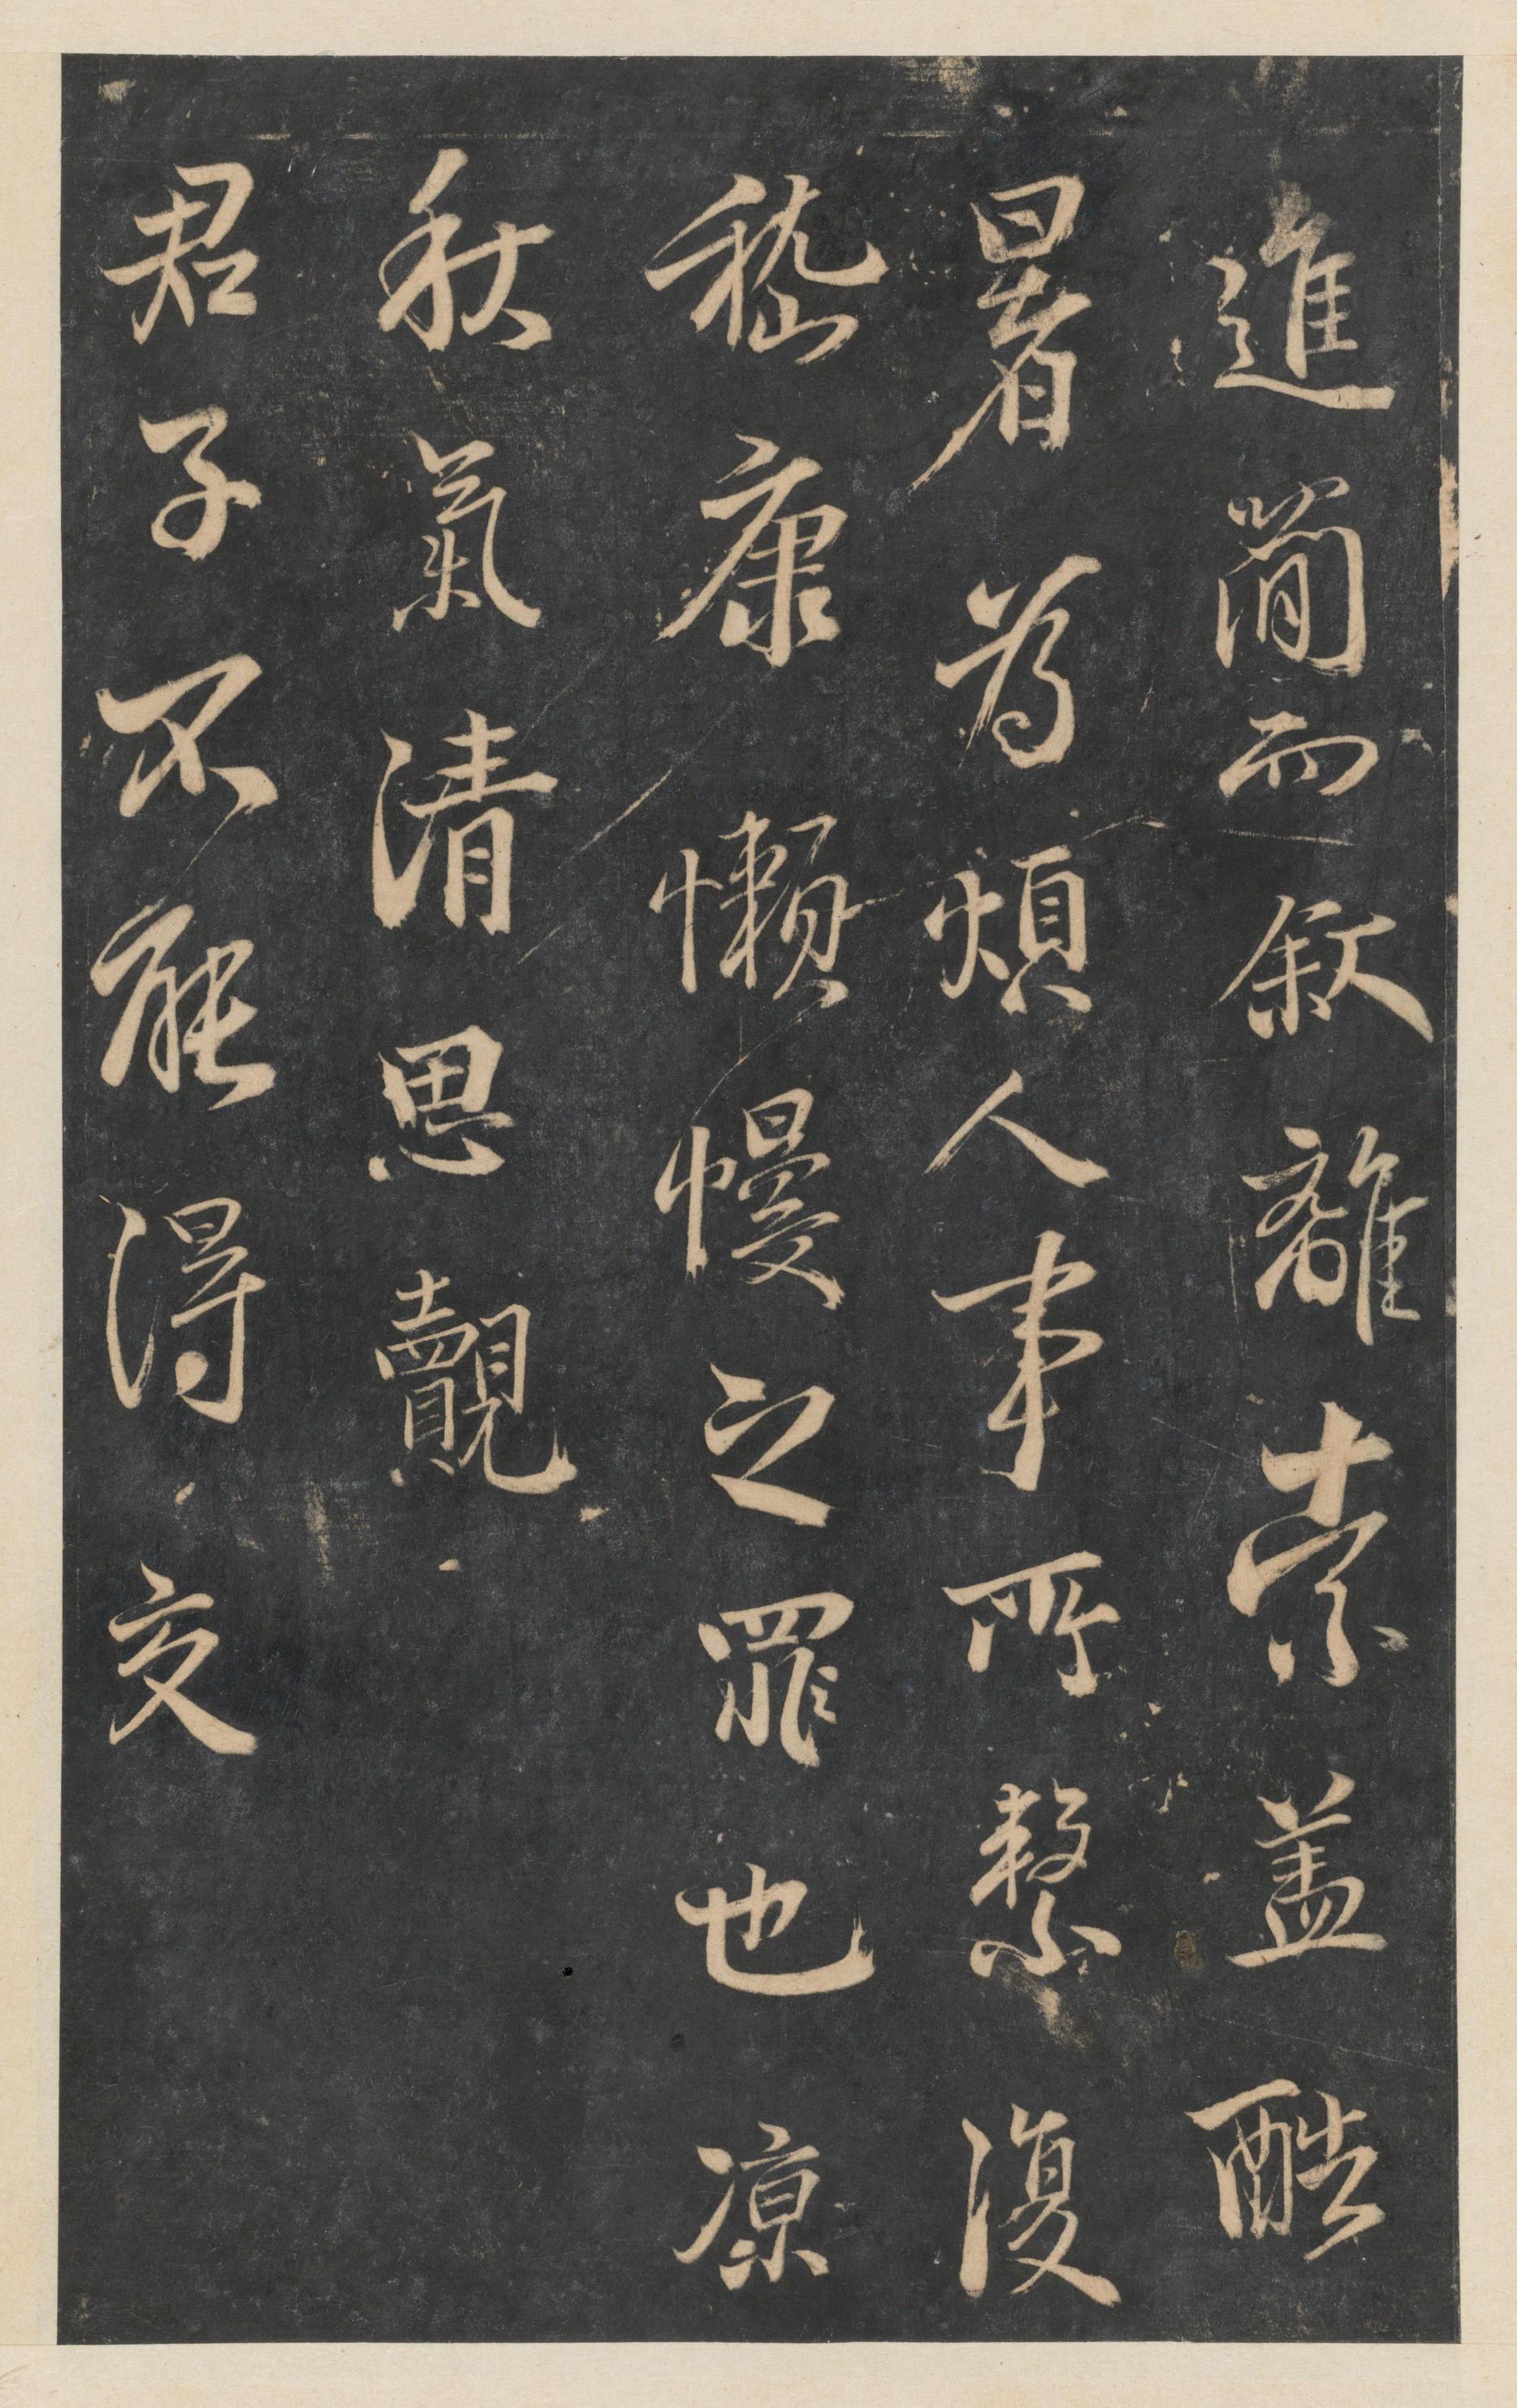 進簡而敘離索盖酷
暑為煩人事所繫復
嵇康懶慢之罪也凉
秋氣清思覿
君子不能得交